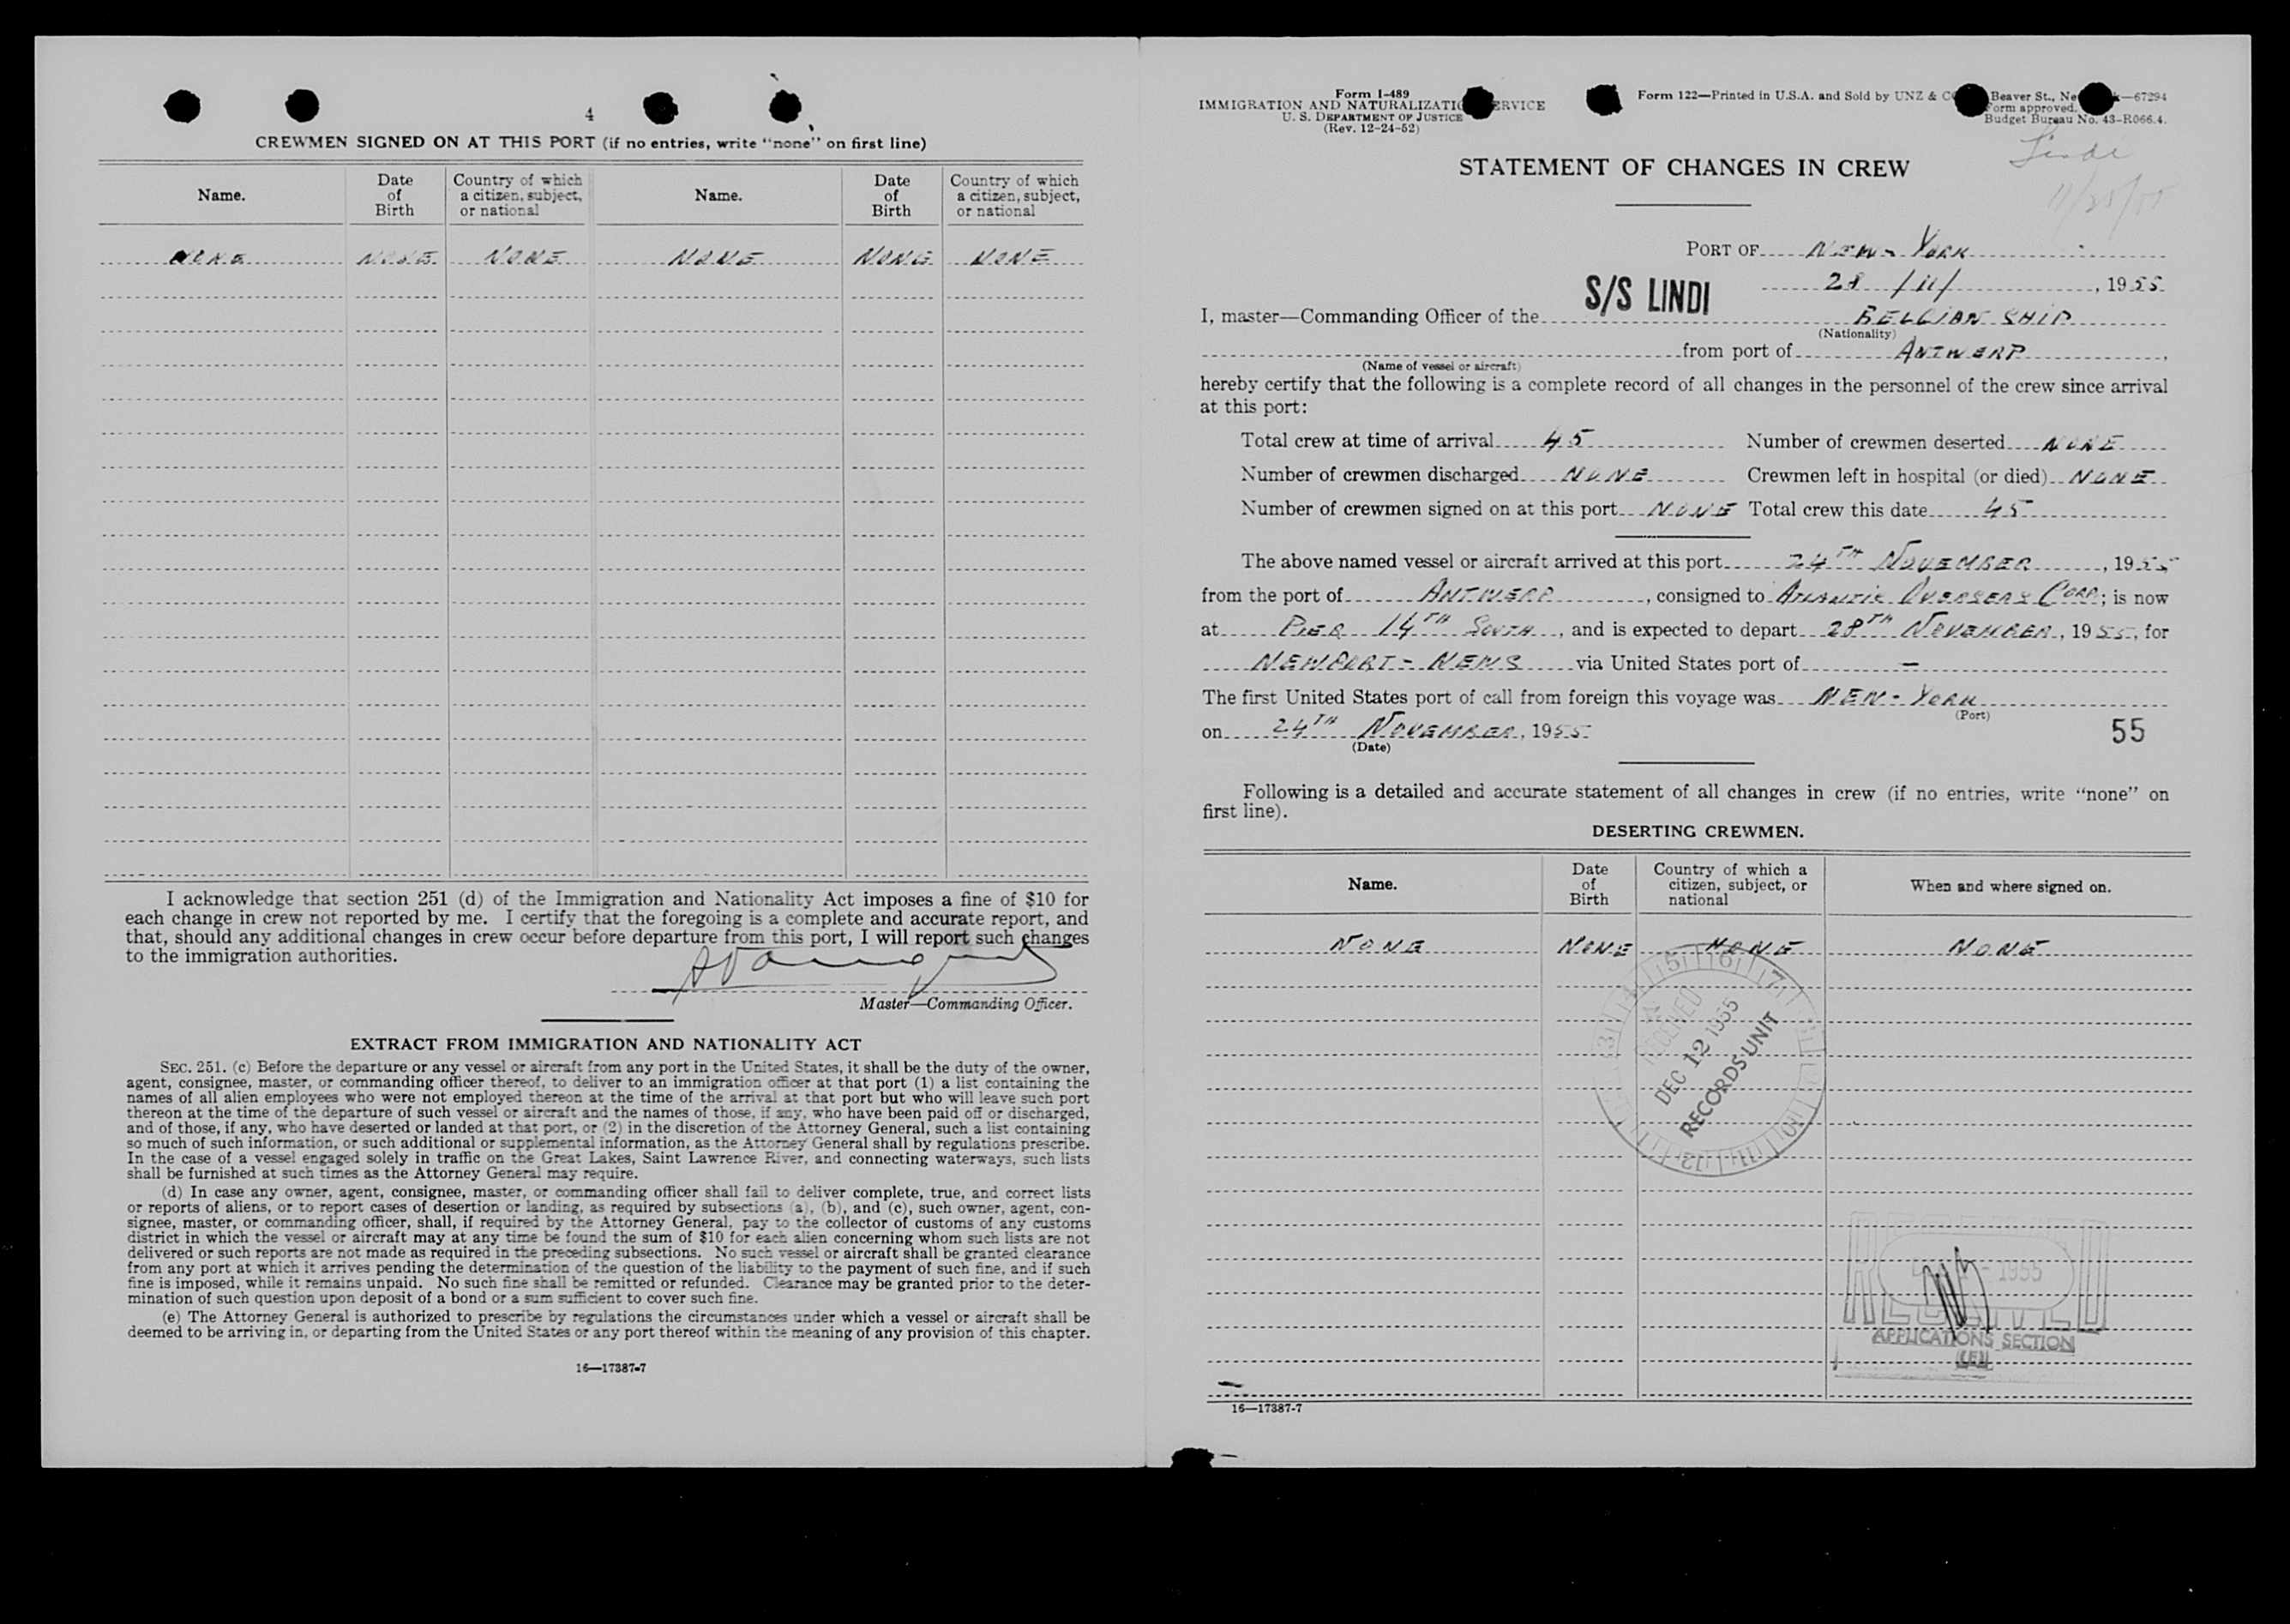 4
CREWMEN SIGNED ON AT THIS PORT (if no entries, write "none" on first line)
Name. Date of Birth Country of which a citizen, subject, or national Name. Date of Birth Country of which a citizen, subject, or national
NONE NONE NONE NONE NONE NONE
I acknowledge that section 251 (d) of the Immigration and Nationality Act imposes a fine of $10 for
each change in crew not reported by me. I certify that the foregoing is a complete and accurate report, and
that, should any additional changes in crew occur before departure from this port, I will report such changes
to the immigration authorities.
Master—Commanding Officer.
EXTRACT FROM IMMIGRATION AND NATIONALITY ACT
SEC. 251. (c) Before the departure or any vessel or aircraft from any port in the United States, it shall be the duty of the owner,
agent, consignee, master, or commanding officer thereof, to deliver to an immigration officer at that port (1) a list containing the
names of all alien employees who were not employed thereon at the time of the arrival at that port but who will leave such port
thereon at the time of the departure of such vessel or aircraft and the names of those, if any, who have been paid off or discharged,
and of those, if any, who have deserted or landed at that port, or (2) in the discretion of the Attorney General, such a list containing
so much of such information, or such additional or supplemental information, as the Attorney General shall by regulations prescribe.
In the case of a vessel engaged solely in traffic on the Great Lakes, Saint Lawrence River, and connecting waterways, such lists
shall be furnished at such times as the Attorney General may require.
(d) In case any owner, agent, consignee, master, or commanding officer shall fail to deliver complete, true, and correct lists
or reports of aliens, or to report cases of desertion or landing, as required by subsections (a), (b), and (c), such owner, agent, con-
signee, master, or commanding officer, shall, if required by the Attorney General, pay to the collector of customs of any customs
district in which the vessel or aircraft may at any time be found the sum of $10 for each alien concerning whom such lists are not
delivered or such reports are not made as required in the preceding subsections. No such vessel or aircraft shall be granted clearance
from any port at which it arrives pending the determination of the question of the liability to the payment of such fine, and if such
fine is imposed, while it remains unpaid. No such fine shall be remitted or refunded. Clearance may be granted prior to the deter-
mination of such question upon deposit of a bond or a sum sufficient to cover such fine.
(e) The Attorney General is authorized to prescribe by regulations the circumstances under which a vessel or aircraft shall be
deemed to be arriving in, or departing from the United States or any port thereof within the meaning of any provision of this chapter.
16—17387-7
Form I-489
IMMIGRATION AND NATURALIZATION SERVICE
U. S. DEPARTMENT OF JUSTICE
(Rev. 12-24-52)
Form 122—Printed in U.S.A. and Sold by UNZ & Beaver St., —67294
Form approved.
Budget Bureau No. 43-R066.4.
STATEMENT OF CHANGES IN CREW
PORT OF NEW-YORK
28/11/, 1955
I, master—Commanding Officer of the S/S LINDI BELGIAN SHIP
(Nationality)
from port of ANTWERP,
(Name of vessel or aircraft)
hereby certify that the following is a complete record of all changes in the personnel of the crew since arrival
at this port:
Total crew at time of arrival 45 Number of crewmen deserted NONE
Number of crewmen discharged NONE Crewmen left in hospital (or died) NONE
Number of crewmen signed on at this port NONE Total crew this date 45
The above named vessel or aircraft arrived at this port 24TH NOVEMBER, 1955
from the port of ANTWERP, consigned to ATLANTIC OVERSEAS CORP.; is now
at PIER 14TH SOUTH, and is expected to depart 28TH NOVEMBER, 1955, for
NEWPORT-NEWS via United States port of —
The first United States port of call from foreign this voyage was NEW-YORK
(Port)
on 24TH NOVEMBER, 1955
(Date)
55
Following is a detailed and accurate statement of all changes in crew (if no entries, write "none" on
first line).
DESERTING CREWMEN.
Name. Date of Birth Country of which a citizen, subject, or national When and where signed on.
NONE NONE NONE NONE
RECEIVED
DEC 12 1955
RECORDS UNIT
RECEIVED
1955
APPLICATIONS SECTION
16—17387-7